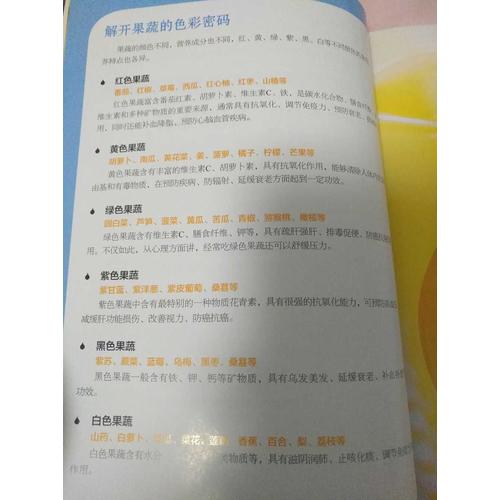 解开果蔬的色彩密码
果蔬的颜色不同，营养成分也不同，红、黄、绿、紫、黑、白等不同颜色的果蔬
养特点也各异。
红色果蔬
番茄、红椒、草莓、西瓜、红心柚、红枣、山楂等
红色果蔬富含番茄红素、胡萝卜素、维生素C、铁，是碳水化合物、膳食纤维
维生素和多种矿物质的重要来源，通常具有抗氧化、调节免疫力、预防衰老
用，同时还能补血降脂，预防心脑血管疾病。
黄色果蔬
胡萝卜、南瓜、黄花菜、姜、菠萝、橘子、柠檬、芒果等
黄色果蔬含有丰富的维生素C、胡萝卜素，具有抗氧化作用，能够清除人体内
由基和有毒物质，在预防疾病、防辐射、延缓衰老方面起到一定功效。
绿色果蔬
圆白菜、芦笋、菠菜、黄瓜、苦瓜、青椒、猕猴桃、橄榄等
绿色果蔬含有维生素C、膳食纤维、钾等，具有疏肝强肝、排毒促便、防癌抗
用。不仅如此，从心理方面讲，经常吃绿色果蔬还可以舒缓压力。
紫色果蔬
紫甘蓝、紫洋葱、紫皮葡萄、桑葚等
紫色果蔬中含有最特别的一种物质花青素，具有很强的抗氧化能力，可预防
减缓肝功能损伤、改善视力、防癌抗癌。
黑色果蔬
紫苏、蕨菜、蓝莓、乌梅、黑枣、桑葚等
黑色果蔬一般含有铁、钾、钙等矿物质，具有乌发美发、延缓衰老、补血补
功效。
白色果蔬
山药、白萝卜、菜花、莲藕、香蕉、百合、梨、荔枝等
白色果蔬含有水分 物质等，具有滋阴润肺、止咳化痰、调节免疫
作用。